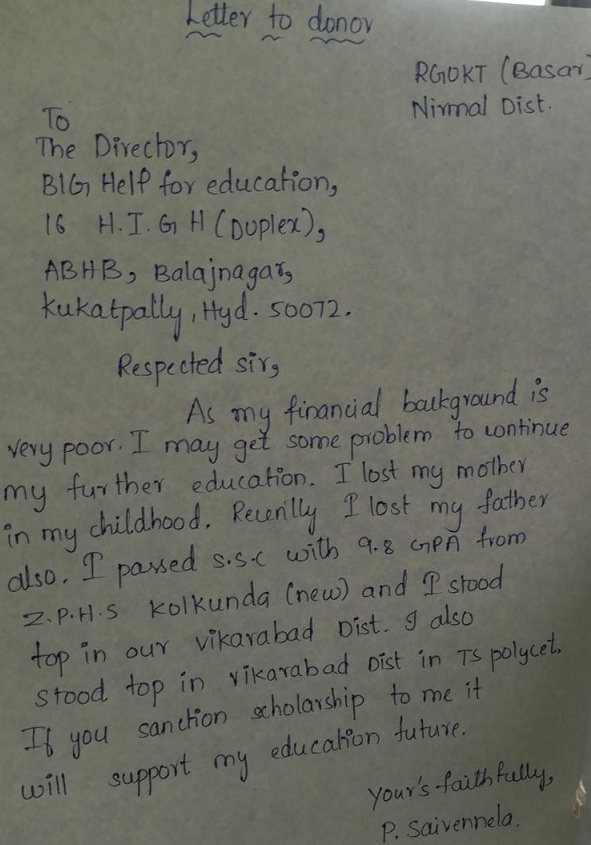 Letter to donor
RGUKT (Basar)
Nirmal Dist.
To
The Director,
BIG Help for education,
16 H.I.G H (Duplex),
ABHB, Balajnagar,
kukatpally, Hyd. 50072.
Respected sir,
As my financial background is
very poor. I may get some problem to continue
my further education. I lost my mother
in my childhood. Recenlly I lost my father
also. I passed s.s.c with 9.8 GPA from
Z.P.H.S Kolkunda (new) and I stood
top in our vikarabad Dist. I also
stood top in vikarabad Dist in TS polycet.
If you sanction scholarship to me it
will support my education future.
your's faithfully,
P. Saivennela.